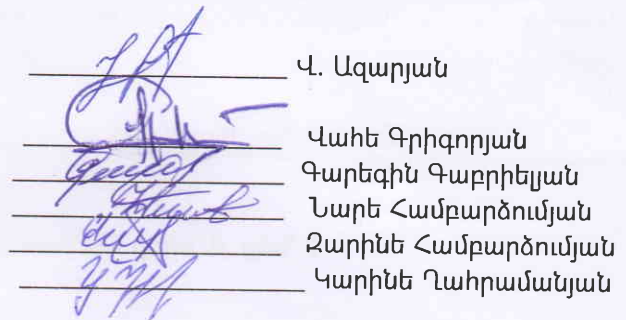 Վ. Ազարյան
Վահե Գրիգորյան
Գարեգին Գաբրիելյան
Նարե Համբարձումյան
Զարինե Համբարձումյան
Կարինե Ղահրամանյան